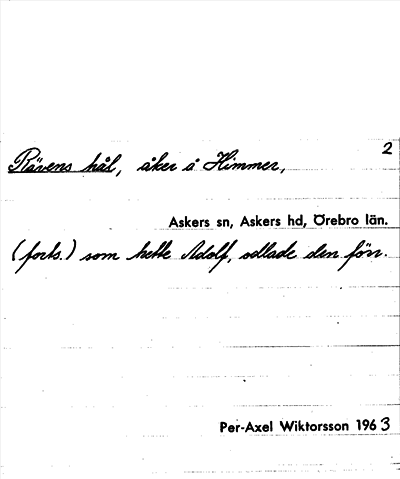 2
Rävens hål, åker å Himmer,
Askers sn, Askers hd, Örebro län.
(forts.) som hette Adolf, odlade den förr.
Per-Axel Wiktorsson 1963